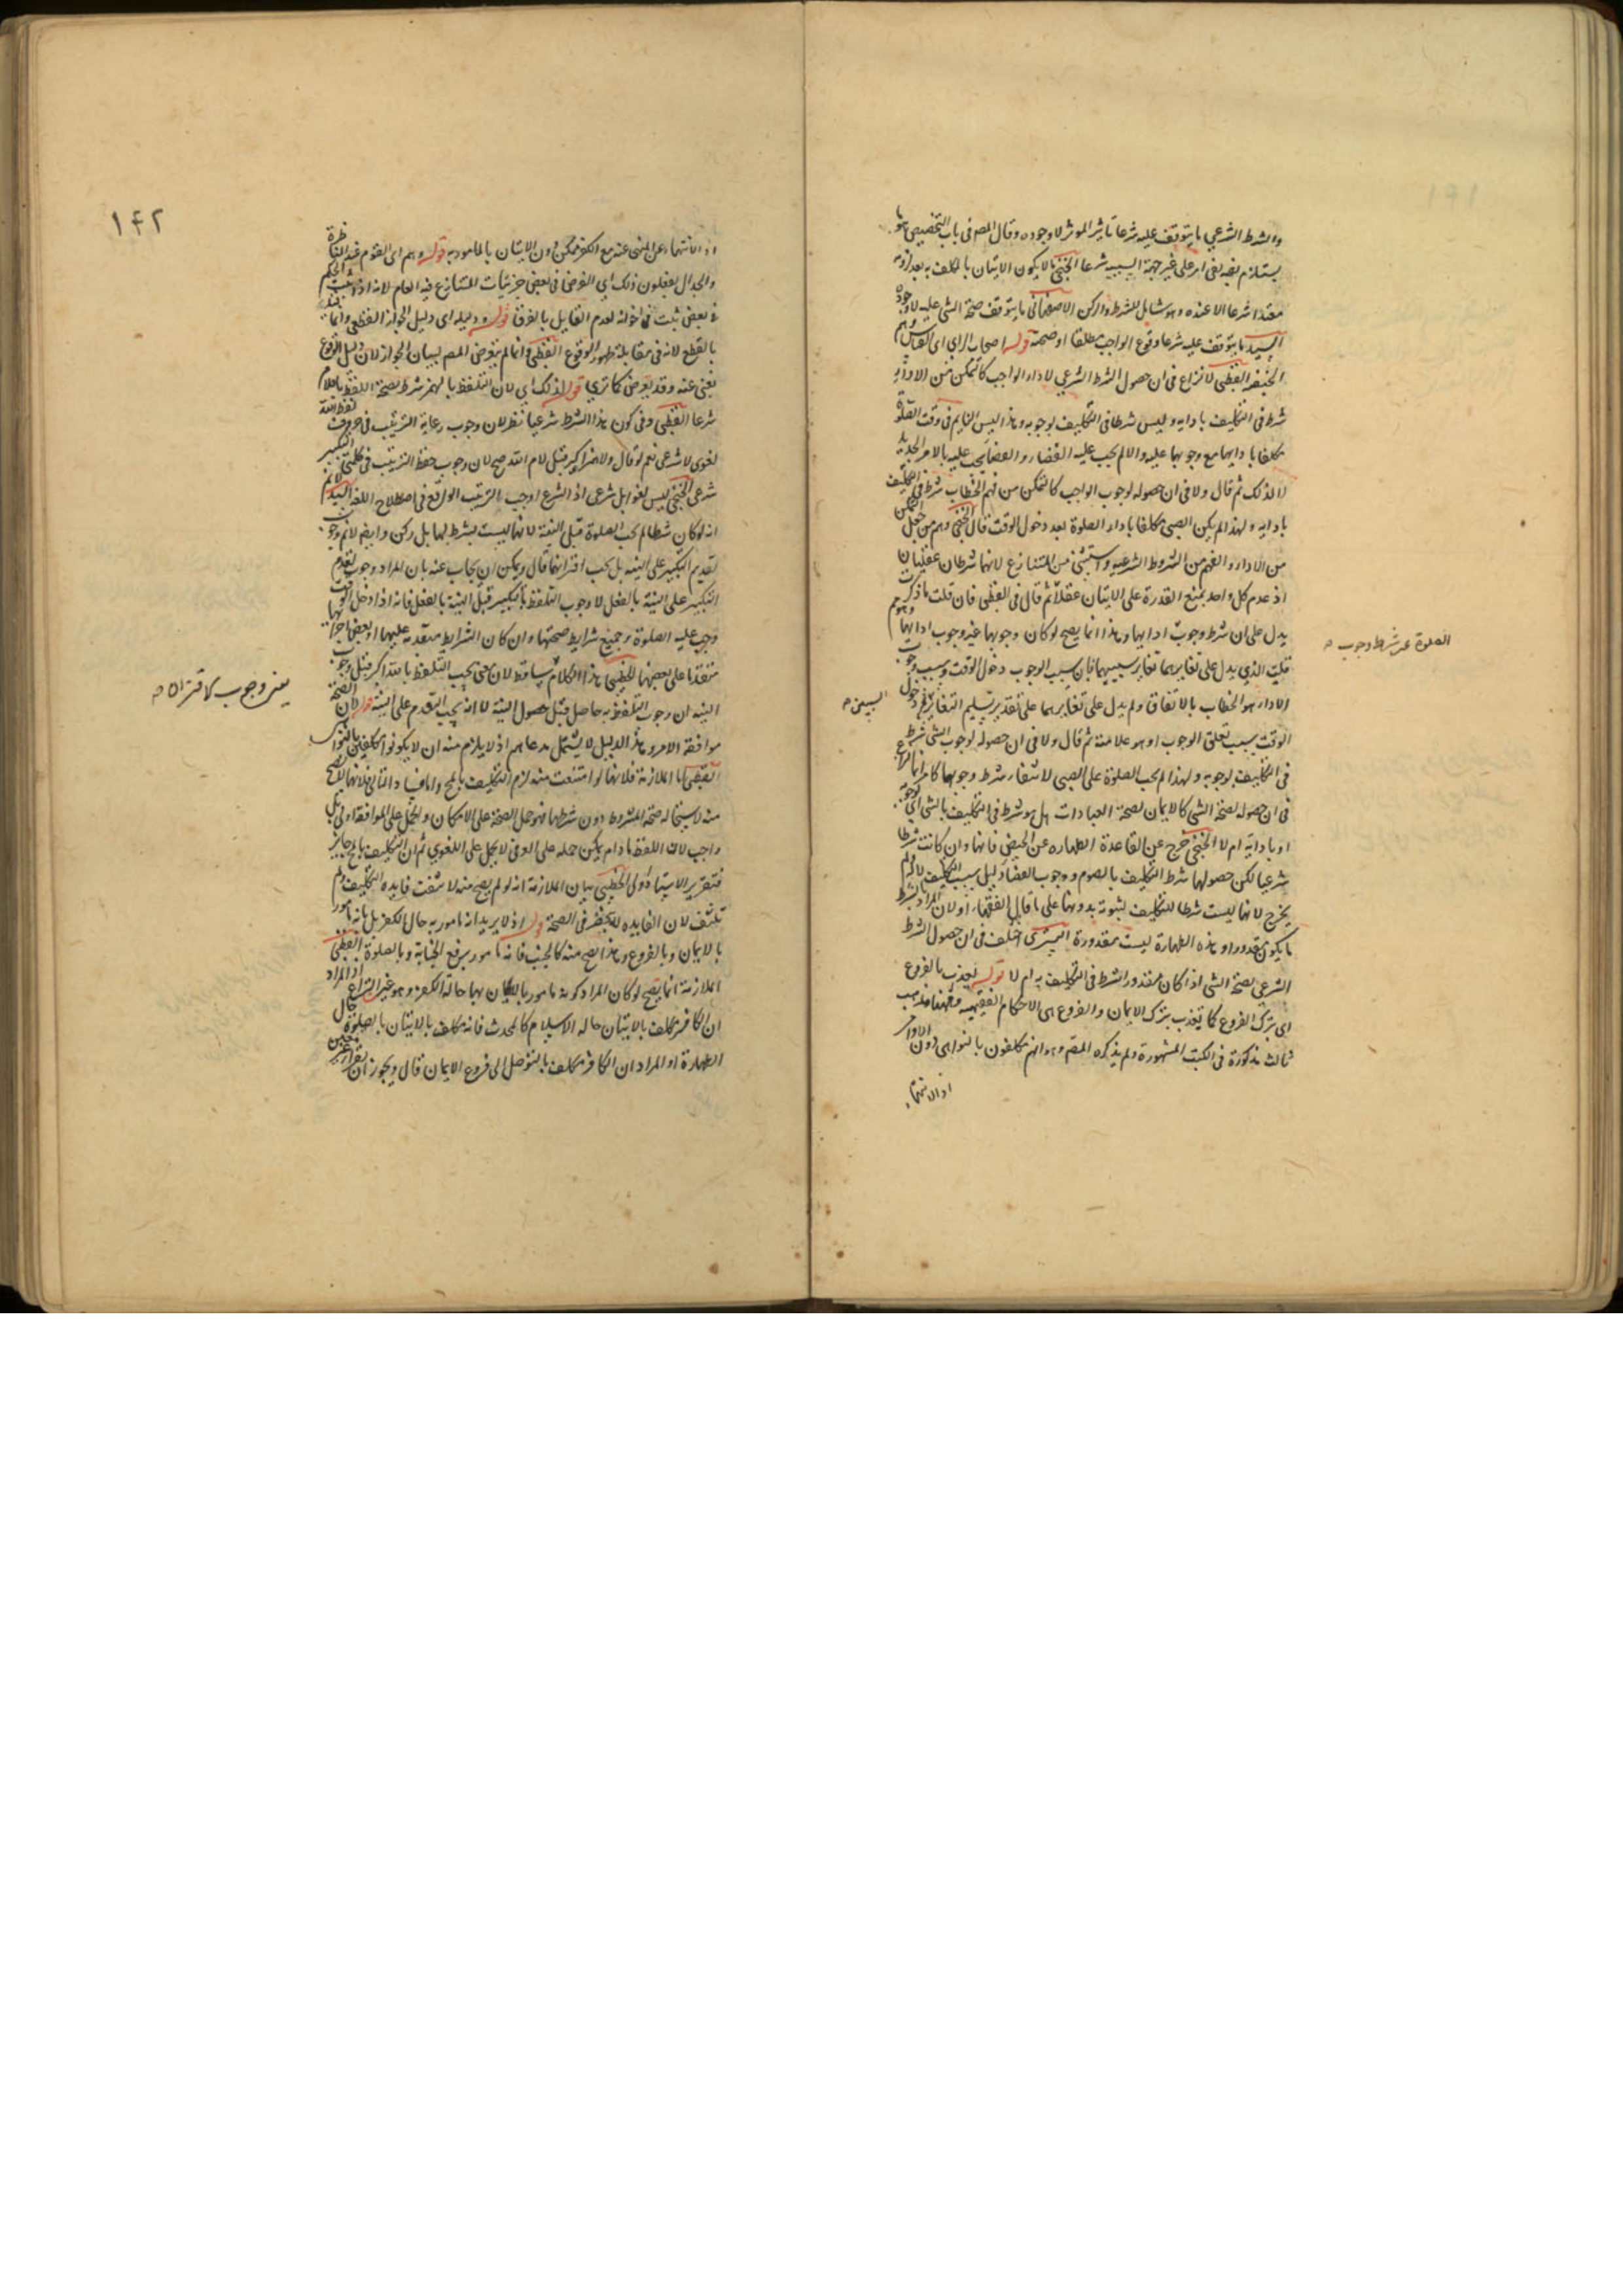 والشرط الشرعي ما يتوقف عليه شرعا تاثير الموثر لا وجوده وقال المص في باب التخصيص هو ما
يستلزم نفيه نفي امر على غير جهة السببيه شرعا الخنجي ما لا يكون الاتيان بالمكلف به بعد
معتدا شرعا الا عنده وهو شامل للشرط والركن الاصفهاني ما يتوقف صحة الشي عليه لا وجوده
السيد ما يتوقف عليه شرعا وقوع الواجب مطلقا او صحته قوله اصحاب الراي اي القياس وهم
الحنفيه القطبي لا نزاع في ان حصول الشرط الشرعي لاداء الواجب كالتمكن من
شرط في التكليف بادايه وليس شرطا في التكليف بوجوبه وهذا ليس النايم في وقت الصلوة
مكلفا بادايها مع وجوبها عليه والا لم يجب عليه القضاء والقضا يجب عليه بالامر
لا لذلك ثم قال ولا في ان حصوله لوجوب الواجب كالتمكن من فهم الخطاب شرط في التكليف
بادايه ولهذا لم يكن الصبي مكلفا باداء الصلوة بعد دخول الوقت قال الخنجي وهم من جعل التمكن
من الاداء والفهم من الشروط الشرعيه واستثنى من المتنازع لانهما شرطان عقليان
اذ عدم كل واحد يمنع القدرة على الاتيان عقلا ثم قال في القطبي فان قلت ما ذكرت
يدل على ان شرط وجوب ادايها وهذا انما يصح لو كان وجوبها غير وجوب ادايها وهو مم
قلت الذي يدل على تغايرهما تغاير سببيهما فان سبب الوجوب دخول الوقت وسبب وجوب
الاداء هو الخطاب بالاتفاق ولم يدل على تغايرهما على تقدير تسليم التغاير دخول
الوقت سبب تعلق الوجوب او هو علامته ثم قال ولا في ان حصوله لوجوب الشي شرط
في التكليف بوجوبه ولهذا لم يجب الصلوة على الصبي لانتفاء شرط وجوبها كما مر انما النزاع
في ان حصوله لصحة الشي كالايمان لصحة العبادات هل هو شرط في التكليف بالشي اي بوجوبه
او بادايه ام لا الخنجي خرج عن القاعدة الطهاره عن الحيض فانها وان كانت شرطا
شرعيا لكن حصولها شرط التكليف بالصوم ووجوب القضا دليل سبب التكليف لا هو ولم
يخرج لانها ليست شرطا للتكليف لثبوته بدونها على ما قال الفقهاء او لان المراد بالشرط
ما يكون مقدورا وهذه الطهارة ليست مقدورة التستري اختلف في ان حصول الشرط
الشرعي لصحة الشي اذا كان مقدورا شرط في التكليف به ام لا قوله يعذب بالفروع
اي بترك الفروع كما يعذب بترك الايمان والفروع هي الاحكام الفقهيه وههنا مذهب
ثالث مذكورة في الكتب المشهورة ولم يذكره المص وهو انهم مكلفون بالنواهي دون الاوامر
اذ الانتهاء
الصلوة عن شرط وجوب صح
السببين صح
١٤٢
اذ الانتهاء عن المنهي عنه مع الكفر ممكن دون الاتيان بالمامور به قوله وهم اي القوم عند المناظرة
والجدال يفعلون ذلك اي الفرض في بعض جزئيات المتنازع فيه العام لانه اذا ثبت الحكم
في بعض ثبت في اخواته لعدم القايل بالفرق قوله ودليله اي دليل الجواز القطعي وانما
بالقطع لانه في مقابلة ظهور الوقوع القطبي وانما لم يتعرض المص لبيان الجواز لان دليل الوقوع
يغني عنه وقد تعرض كما تري قوله لذلك اي لان التلفظ بالهمز شرط لصحة اللفظ باللام
شرعا القطبي وفي كون هذا الشرط شرعيا نظر لان وجوب رعاية الترتيب في حروف لفظ الله
لغوي لا شرعي نعم لو قال ولا الله اكبر قبل لام الله صح لان وجوب حفظ الترتيب في كلمتي التكبير
شرعي الخنجي ليس لغوا بل شرعي اذ الشرع اوجب الترتيب الواقع في اصطلاح اللغه السيد لا ثم
انه لو كان شرطا لم يجب الصلوة قبل النية لانها ليست بشرط لها بل ركن وايضا لا ثم وجوب
تقديم التكبير على النيه بل يجب اقترانهما قال ويمكن ان يجاب عنه بان المراد وجوب تقدم
التكبير على النية بالفعل لا وجوب التلفظ بالتكبير قبل النية بالفعل فانه اذا دخل الوقت
وجب عليه الصلوة وجميع شرايط صحتها وان كان الشرايط متقدمه عليها او بعض اجزائها
متقدما على بعضها الخطيبي هذا الكلام ساقط لان معنى يجب التلفظ بالله اكبر قبل وجوب
النيه ان وجوب التلفظ به حاصل قبل حصول النية لا انه يجب التقدم على النية قوله لان الصحة
موافقة الامر وهذا الدليل لا يشتمل مدعاهم اذ لا يلزم منه ان لا يكونوا مكلفين بالنواهي
القطبي اما الملازمة فلانها لو امتنعت منه لزم التكليف بالمح واما انتفاء التالي فلانها لا تصح
منه لاستحاله صحة المشروط دون شرطها فهو حمل الصحة على الامكان والحمل على الموافقة اولى بل
واجب لان اللفظ ما دام يمكن حمله على العرفي لا يحمل على اللغوي ثم ان التكليف بالمح جايز
فتقرير الاستاد اولى الخطيبي بيان الملازمة انه لو لم يصح منه لانتفت فايده التكليف ولم
تنتف لان الفايده لا تنحصر في الصحة قوله اذ لا يريد انه مامور به حال الكفر بل بانه مامور
بالايمان وبالفروع وهذا يصح منه كالجنب فانه مامور برفع الجنابة وبالصلوة القطبي
الملازمة انما تصح لو كان المراد كونه مامورا بالاتيان بها حالة الكفر وهو غير النزاع اذ المراد
ان الكافر مكلف بالاتيان حاله الاسلام كالمحدث فانه مكلف بالاتيان بالصلوة حال
الطهارة او المراد ان الكافر مكلف بالتوصل الى فروع الايمان قال ويجوز ان
يعني وجوب